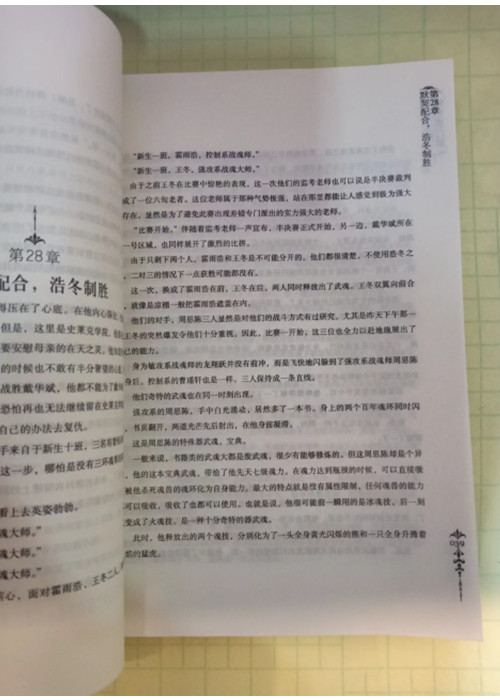 第28章
配合，浩冬制胜
得压在了心底。在他内心深处，
但是，这里是史莱克学院，他
要安慰母亲的在天之灵，他
的时候也不敢有半分奢望的心
战胜戴华斌，他都不能为了
恐怕再也无法继续留在史莱
自己的办法去复仇。
手来自于新生十班，三名
这一步，哪怕是没有三环魂
看上去英姿勃勃。
魂大师。”
魂大师。”
魂大师。”
心，面对霍雨浩、王冬二人，
第28章
默契配合，浩冬制胜
“新生一班，霍雨浩，控制系战魂师。”
“新生一班，王冬，强攻系战魂大师。”
由于之前王冬在比赛中惊艳的表现，这一次他们的监考老师也可以说是半决赛裁判
成了一位六旬老者。这位老师属于那种气势极强，站在那里都能让人感觉到极为强大
存在。显然是为了避免此赛出现差错专门派出的实力强大的老师。
“比赛开始。”伴随着监考老师一声宣布，半决赛正式开始。另一边，戴华斌所在
一号区域，也同样展开了激烈的比拼。
由于只剩下两个人，霍雨浩和王冬是不可能分开的。他们都很清楚，不使用浩冬之
，二对三的情况下一点获胜可能都没有。
这一次，换成了霍雨浩在前，王冬在后，两人同时释放出了武魂。王冬双翼向前合
，就像是凉棚一般把霍雨浩遮盖在内。
他们的对手，周思陈三人显然是对他们的战斗方式有过研究，尤其是昨天下午那一
王冬的突然爆发令他们十分重视。因此，比赛一开始，这三位也全力以赴地施展出了
己的能力。
身为敏攻系战魂师的龙翔跃并没有前冲，而是飞快地闪躲到了强攻系战魂师周思陈
身后，控制系的曹瑾轩也是一样，三人保持成一条直线。
他们奇特的武魂也在同一时刻出现。
强攻系的周思陈，手中白光涌动，居然多了一本书。身上的两个百年魂环同时闪
，书页翻开，两道光芒先后射出，在他身前凝滞。
这是周思陈的特殊器武魂，宝典。
一般来说，书籍类的武魂大都是废武魂，很少有能够修炼的。但这周思陈却是个异
，他的这本宝典武魂，带给了他先天七级魂力。在魂力达到瓶颈的时候，可以直接吸
被他杀死魂兽的魂环化为自身能力。最大的特点就是没有属性限制，任何魂兽的能力
可以吸收，吸收了也都可以使用。也就是说，他很可能前一瞬用的是冰魂技，后一刻
变成了火魂技，是一种十分奇特的器武魂。
此时，他释放出的两个魂技，分别化为了一头全身黄光闪烁的熊和一只全身升腾着
焰的猛虎。
039